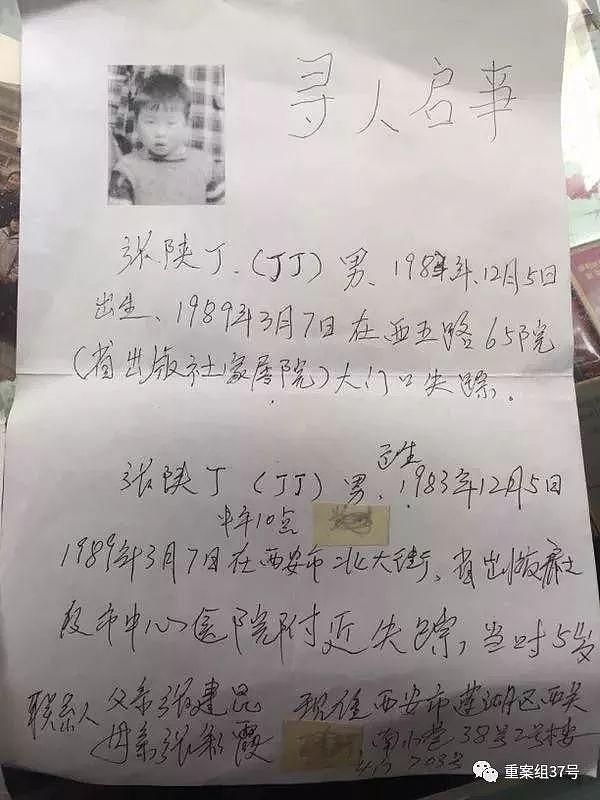 寻人启事
张陕丁、(丁丁) 男、198年、12月5日
出生、1989年3月7日在西五路65院
(省出版社家属院)大门口失踪.
张陕丁 (丁丁) 男、1983年12月5日
正生
中午10点
1989年3月7日在西安市北大街、省出版社
及市中心医院附近失踪,当时5岁
联系人 父亲张建昆 现住西安市莲湖区西关
母亲张彩霞 南小巷38号2号楼
重案组37号